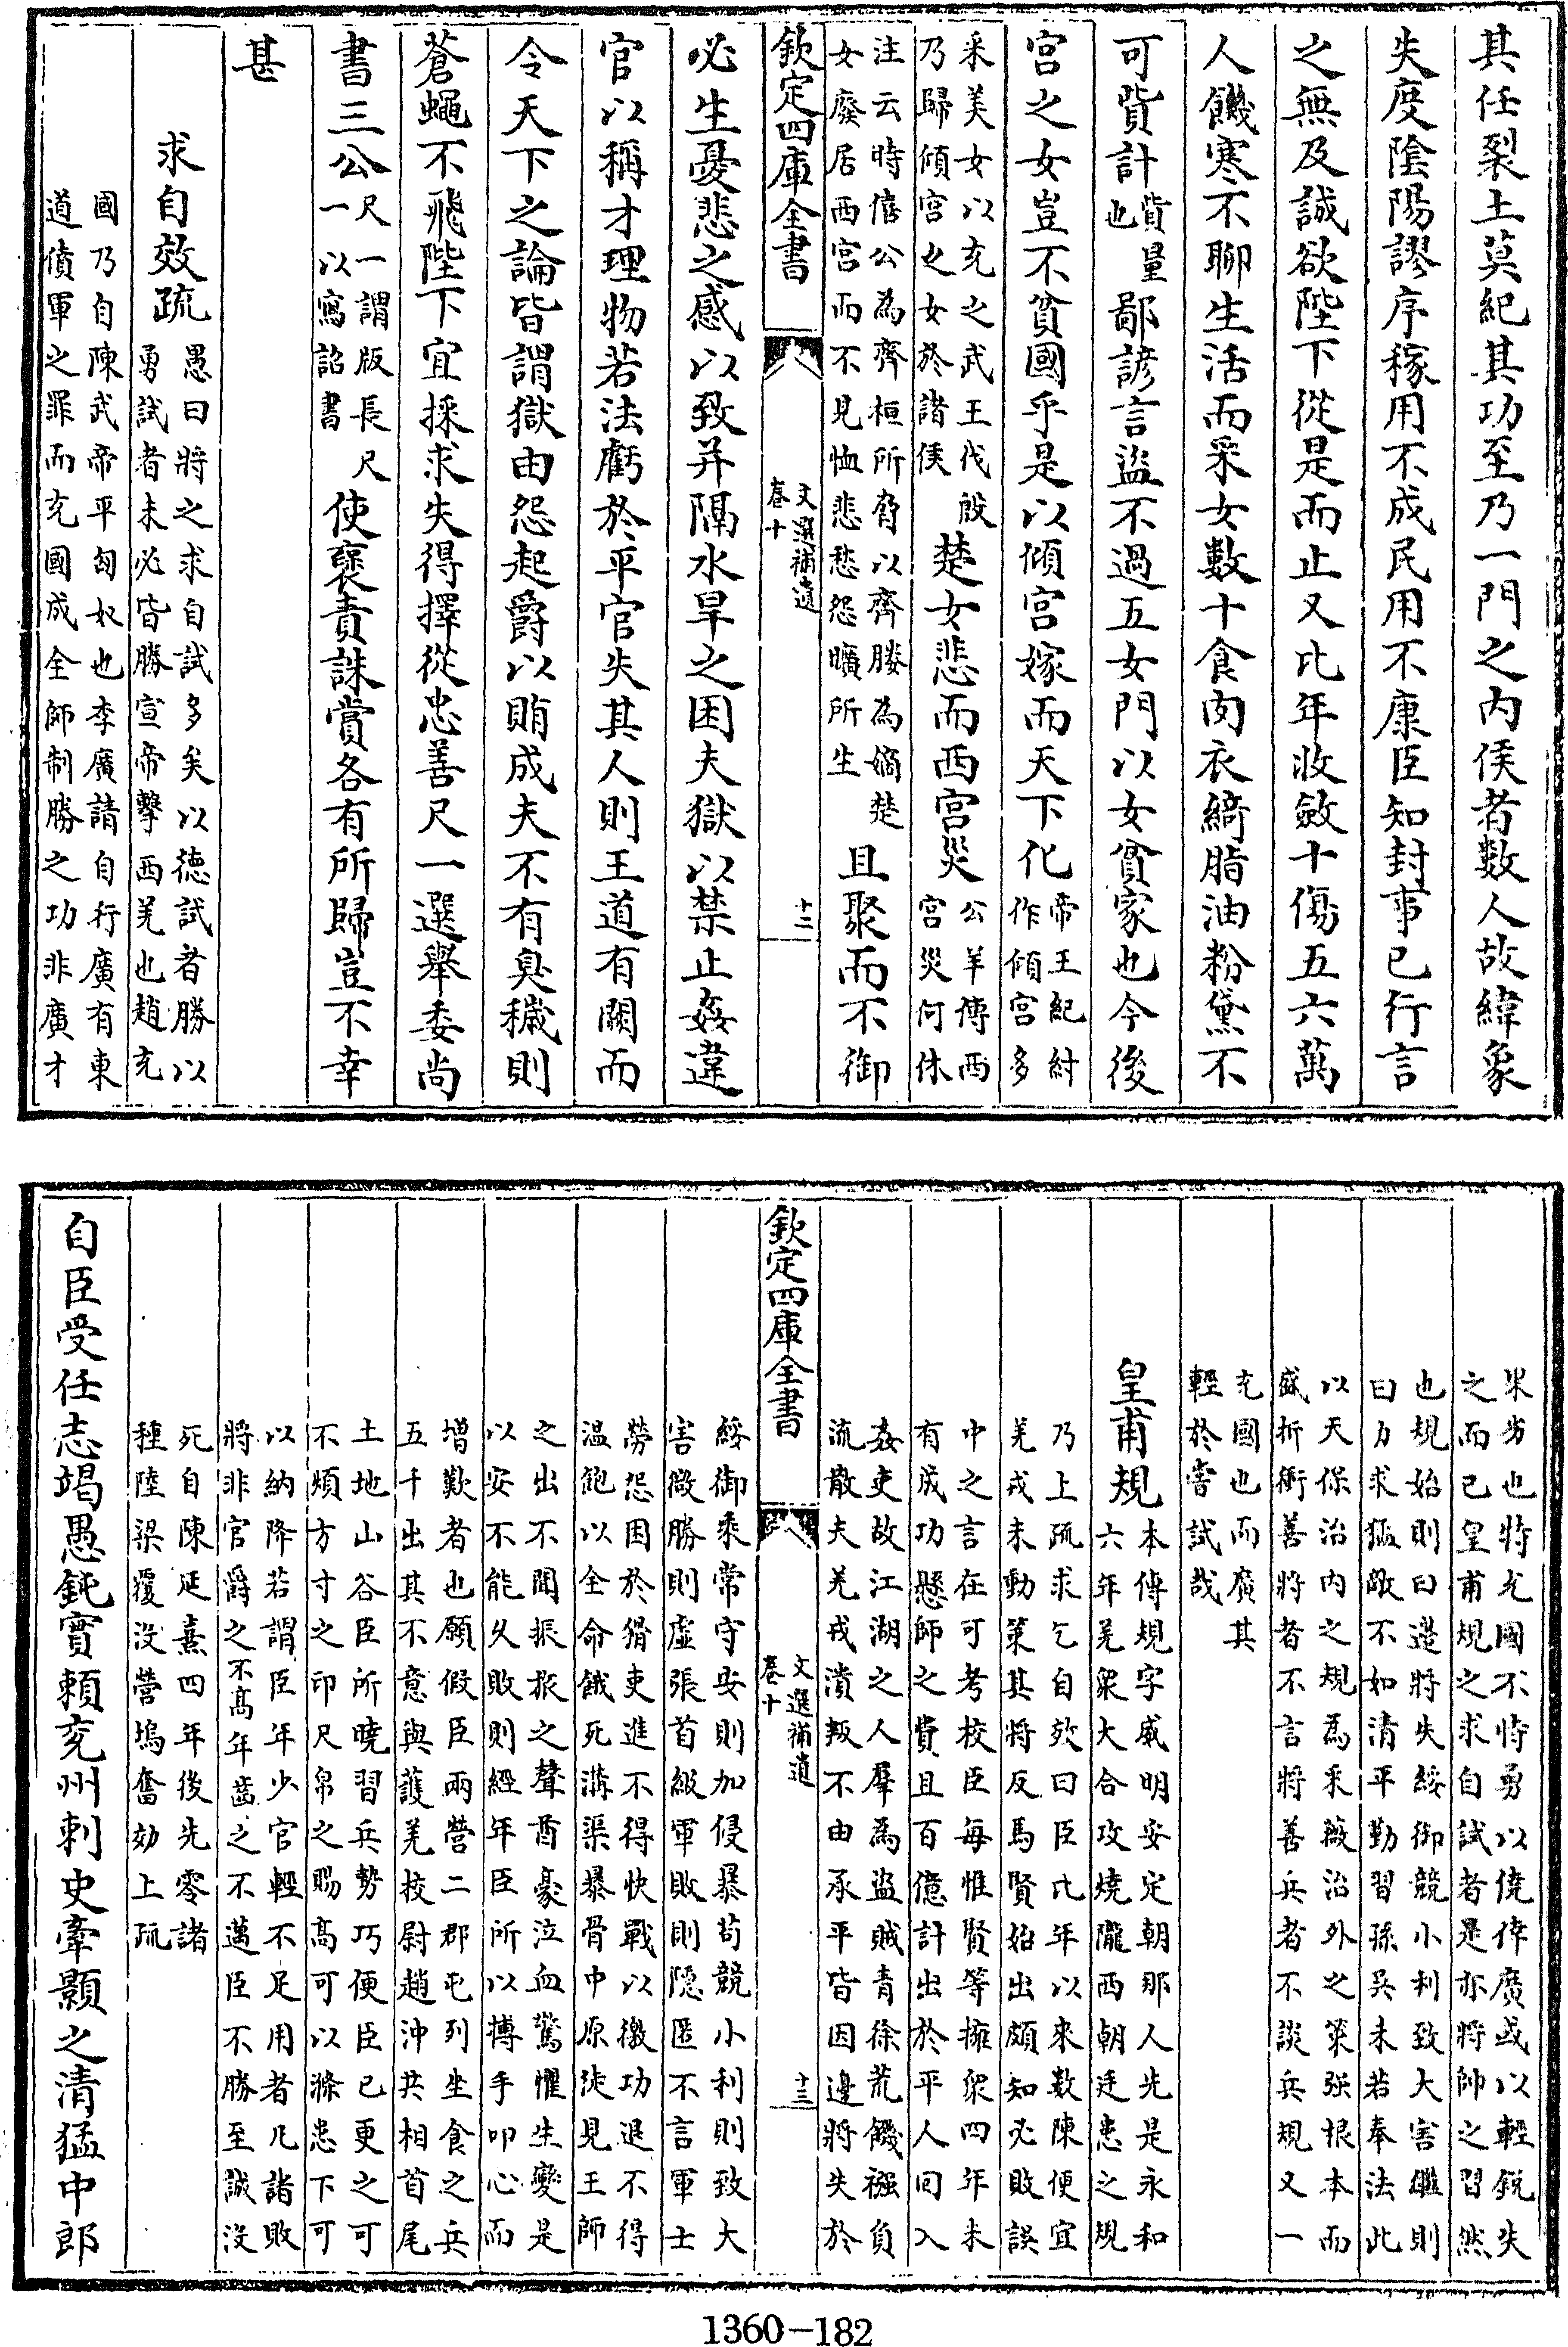 其任裂土莫紀其功至乃一門之内侯者數人故緯象
失度陰陽謬序稼用不成民用不康臣知封事已行言
之無及誠欲陛下從是而止又比年收斂十傷五六萬
人饑寒不聊生活而采女數十食肉衣綺脂油粉黛不
可貲計貲量也鄙諺言盜不過五女門以女貧家也今後
宮之女豈不貧國乎是以傾宮嫁而天下化帝王紀紂作傾宮多
采美女以充之武王伐殷乃歸傾宮之女於諸侯楚女悲而西宮災公羊傳西宮災何休
注云時僖公為齊桓所脅以齊媵為嫡楚女廢居西宮而不見恤悲愁怨曠所生且聚而不御
欽定四庫全書 文選補遺卷十 十二
必生憂悲之感以致并隔水旱之困夫獄以禁止姦違
官以稱才理物若法虧於平官失其人則王道有闕而
令天下之論皆謂獄由怨起爵以賄成夫不有臭穢則
蒼蠅不飛陛下宜採求失得擇從忠善尺一選舉委尚
書三公尺一謂版長尺一以寫詔書使褒責誅賞各有所歸豈不幸
甚
求自效疏愚曰將之求自試多矣以德試者勝以勇試者未必皆勝宣帝擊西羌也趙充
國乃自陳武帝平匈奴也李廣請自行廣有東道僨軍之罪而充國成全師制勝之功非廣才
果劣也將尤國不恃勇以僥倖廣或以輕銳失之而已皇甫規之求自試者是亦將帥之習然
也規始則曰邊將失綏御競小利致大害繼則曰力求猛敵不如清平勤習孫吳未若奉法此
以天保治内之規為采薇治外之策强根本而盛折衝善將者不言將善兵者不談兵規又一
充國也而廣其輕於嘗試哉
皇甫規本傳規字威明安定朝那人先是永和六年羌衆大合攻燒隴西朝廷患之規
乃上疏求乞自效曰臣比年以來數陳便宜羌戎未動策其將反馬賢始出頗知必敗誤
中之言在可考校臣每惟賢等擁衆四年未有成功懸師之費且百億計出於平人回入
姦吏故江湖之人羣為盜賊青徐荒饑襁負流散夫羌戎潰叛不由承平皆因邊將失於
欽定四庫全書 文選補遺卷十 十三
綏御乘常守安則加侵暴苟競小利則致大害微勝則虛張首級軍敗則隱匿不言軍士
勞怨困於猾吏進不得快戰以徼功退不得温飽以全命餓死溝渠暴骨中原徒見王師
之出不聞振旅之聲酋豪泣血驚懼生變是以安不能久敗則經年臣所以搏手叩心而
增歎者也願假臣兩營二郡屯列坐食之兵五千出其不意與護羌校尉趙沖共相首尾
土地山谷臣所曉習兵勢巧便臣已更之可不煩方寸之印尺帛之賜高可以滌患下可
以納降若謂臣年少官輕不足用者凡諸敗將非官爵之不高年齒之不邁臣不勝至誠没
死自陳延熹四年後先零諸種陸梁覆没營塢奮効上疏
自臣受任志竭愚鈍實賴兖州刺史牽顥之清猛中郎
1360-182